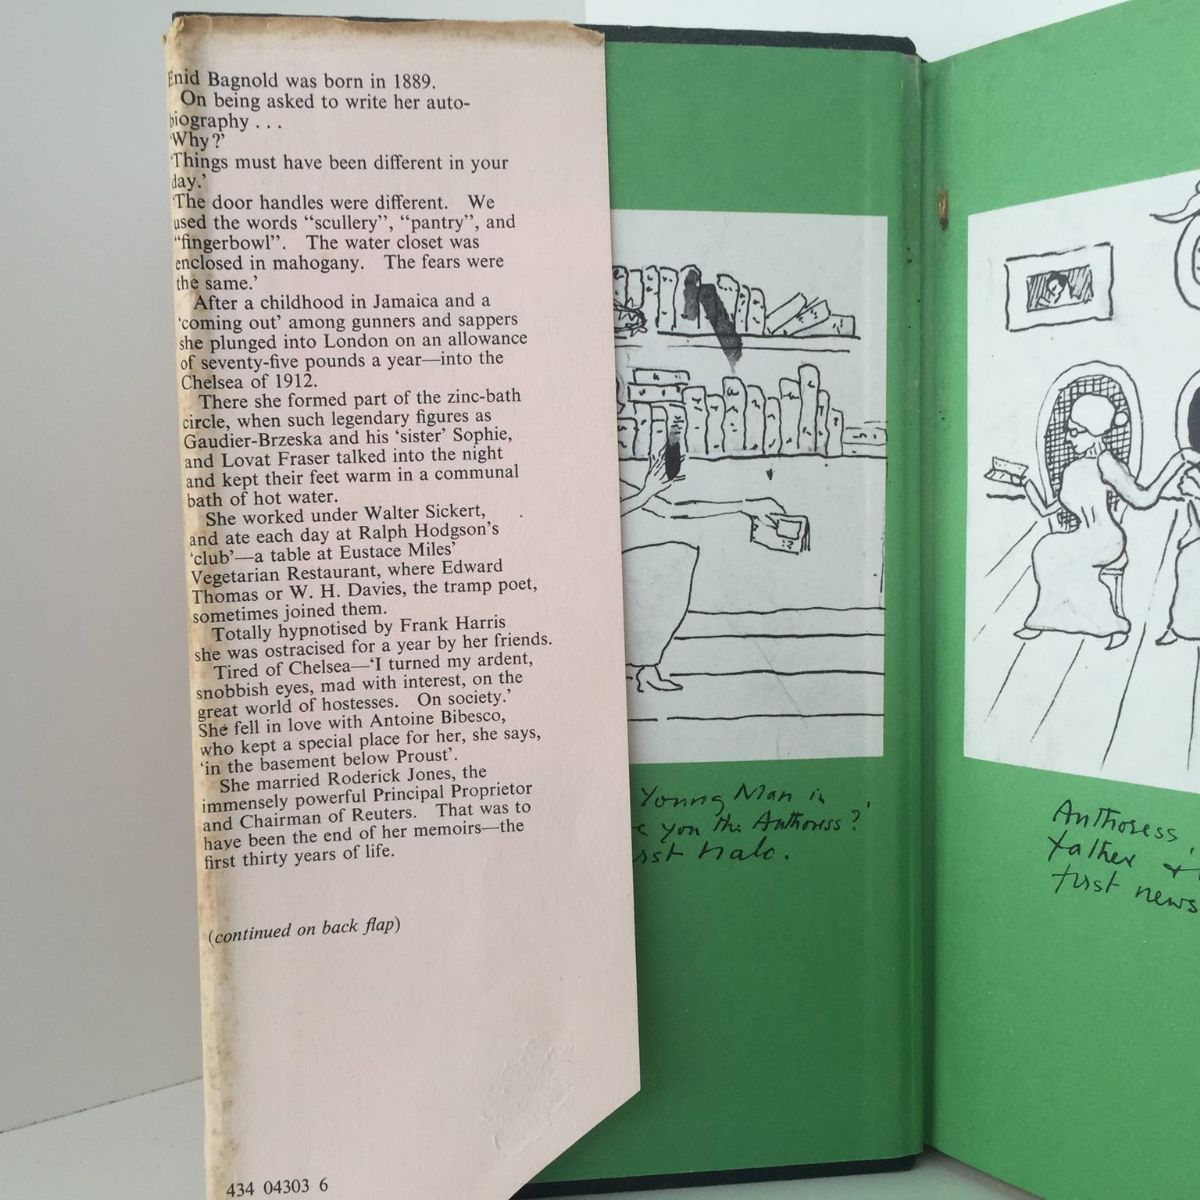 Enid Bagnold was born in 1889.
On being asked to write her auto-
biography . . .
'Why?'
'Things must have been different in your
day.'
'The door handles were different. We
used the words "scullery", "pantry", and
"fingerbowl". The water closet was
enclosed in mahogany. The fears were
the same.'
After a childhood in Jamaica and a
'coming out' among gunners and sappers
she plunged into London on an allowance
of seventy-five pounds a year—into the
Chelsea of 1912.
There she formed part of the zinc-bath
circle, when such legendary figures as
Gaudier-Brzeska and his 'sister' Sophie,
and Lovat Fraser talked into the night
and kept their feet warm in a communal
bath of hot water.
She worked under Walter Sickert,
and ate each day at Ralph Hodgson's
'club'—a table at Eustace Miles'
Vegetarian Restaurant, where Edward
Thomas or W. H. Davies, the tramp poet,
sometimes joined them.
Totally hypnotised by Frank Harris
she was ostracised for a year by her friends.
Tired of Chelsea—'I turned my ardent,
snobbish eyes, mad with interest, on the
great world of hostesses. On society.'
She fell in love with Antoine Bibesco,
who kept a special place for her, she says,
'in the basement below Proust'.
She married Roderick Jones, the
immensely powerful Principal Proprietor
and Chairman of Reuters. That was to
have been the end of her memoirs—the
first thirty years of life.
(continued on back flap)
434 04303 6
Young Man in
you the Authoress?
halo.
Authoress
father &
first news